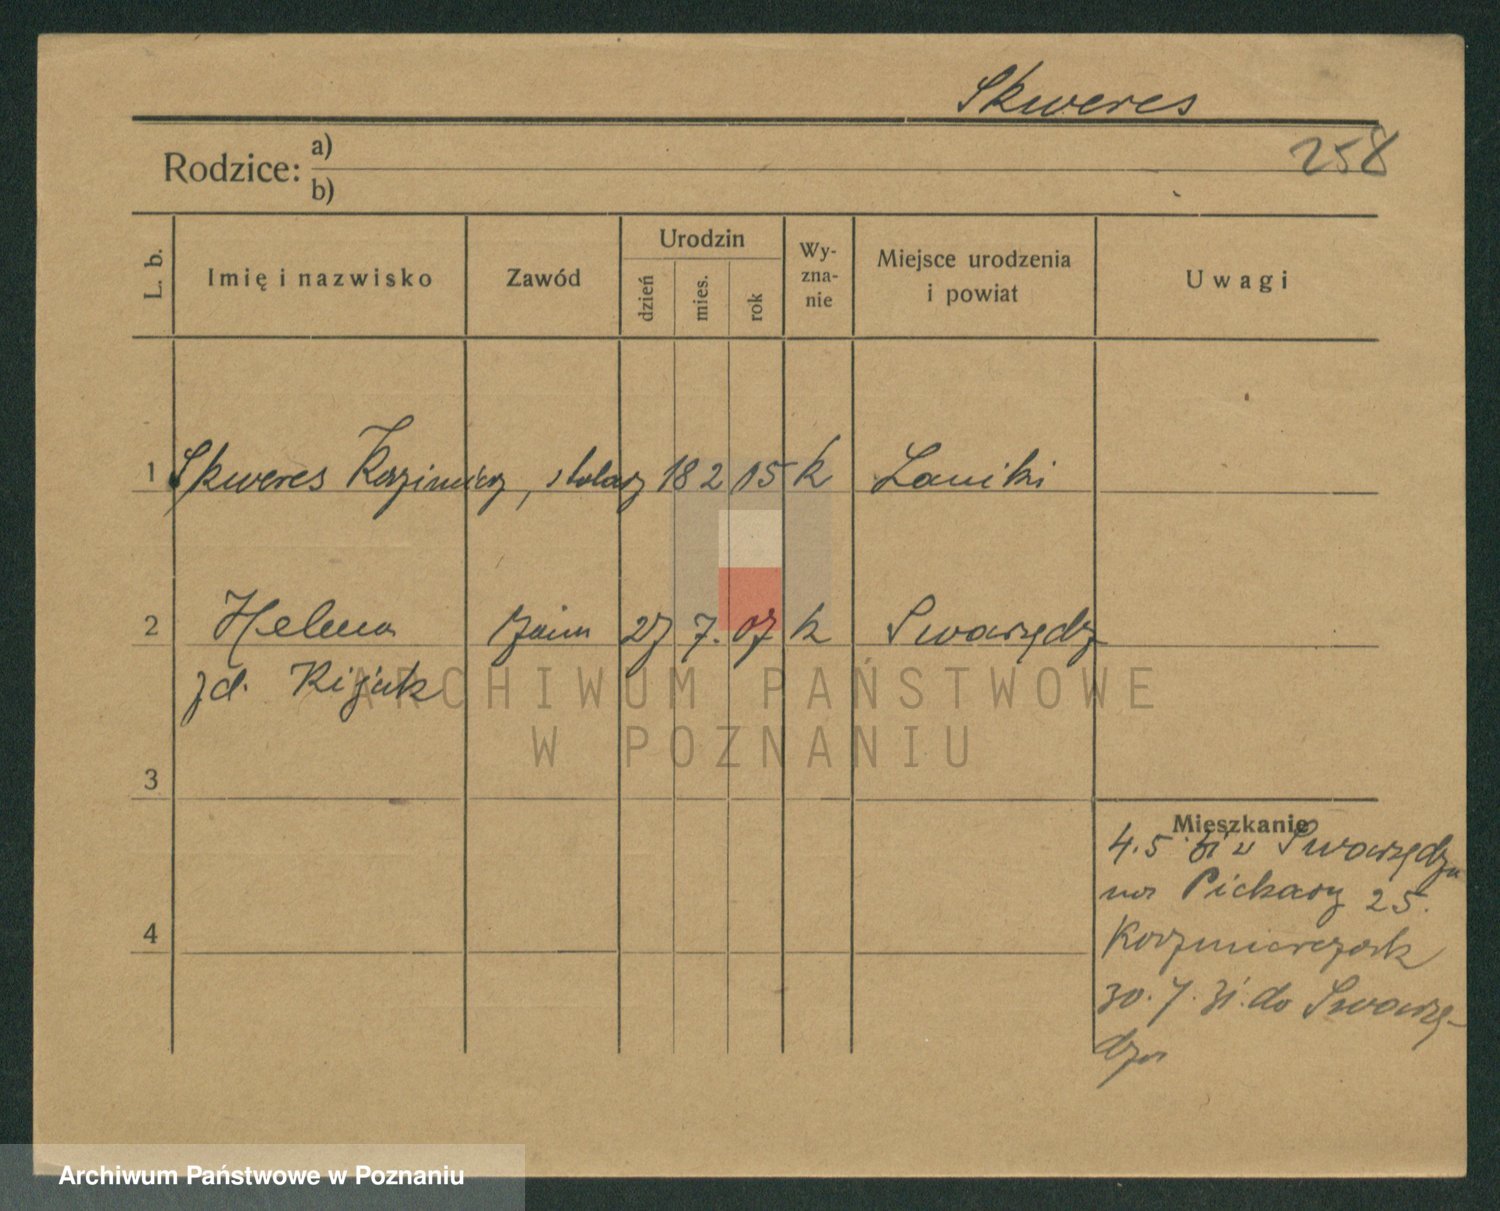 Skweres
258
Rodzice: a)
b)
L. b.
Imię i nazwisko
Zawód
Urodzin
dzień
mies.
rok
Wy-
zna-
nie
Miejsce urodzenia
i powiat
Uwagi
1 Skweres Kazimierz, stolarz 18 2 15 k
2 Helena 27 7. 07 k Swarzędz
zd.
3
Mieszkanie
4.5 Swarzędzu
25.
4
30. 7. 31. do Swarzę-
dza
ARCHIWUM PAŃSTWOWE
W POZNANIU
Archiwum Państwowe w Poznaniu